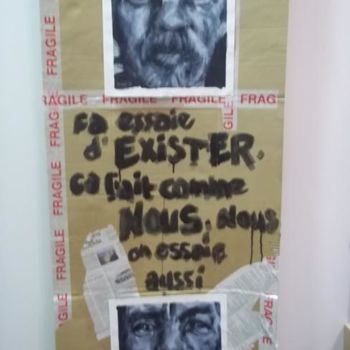 FRAGILE
FRAGILE
FRAGILE FRAGILE FRAGILE FRAG
ça essaie
d'EXISTER.
ça fait comme
NOUS. NOUS
on essaie
aussi
FRAGILE
FRAGILE
FRAGILE
FRAGILE